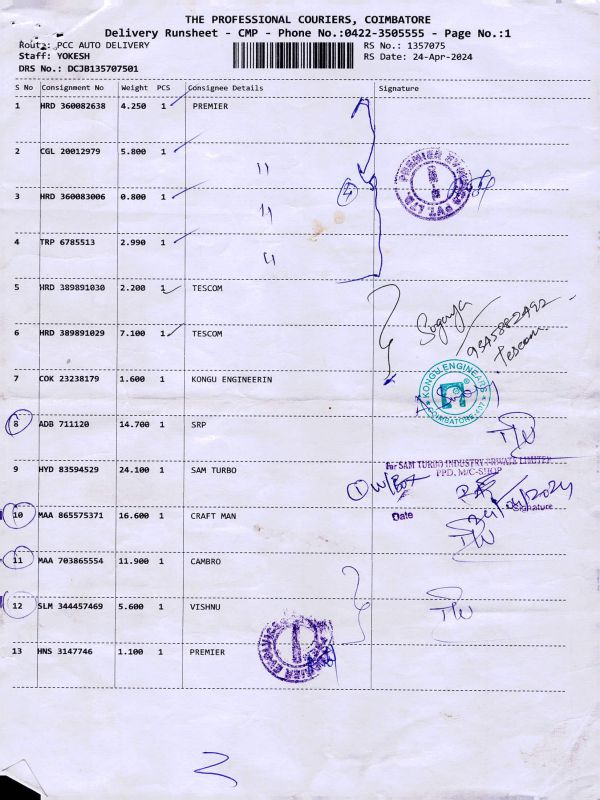 THE PROFESSIONAL COURIERS, COIMBATORE
Delivery Runsheet - CMP - Phone No.:0422-3505555 - Page No.:1
Route: PCC AUTO DELIVERY RS No.: 1357075
Staff: YOKESH RS Date: 24-Apr-2024
DRS No.: DCJB135707501
S No Consignment No Weight PCS Consignee Details Signature
1 HRD 360082638 4.250 1 PREMIER
2 CGL 20012979 5.800 1
3 HRD 360083006 0.800 1
4 TRP 6785513 2.990 1
4
PREMIER PVT LTD.
5 HRD 389891030 2.200 1 TESCOM
6 HRD 389891029 7.100 1 TESCOM
9345882492
Tescom
7 COK 23238179 1.600 1 KONGU ENGINEERIN
KONGU ENGINEERS
COIMBATORE
8 ADB 711120 14.700 1 SRP
9 HYD 83594529 24.100 1 SAM TURBO
for SAM TURBO INDUSTRY PRIVATE LIMITED
PPD, M/C-SHOP
1 W/Box
24/04/2024
Date Signature
10 MAA 865575371 16.600 1 CRAFT MAN
11 MAA 703865554 11.900 1 CAMBRO
12 SLM 344457469 5.600 1 VISHNU
13 HNS 3147746 1.100 1 PREMIER